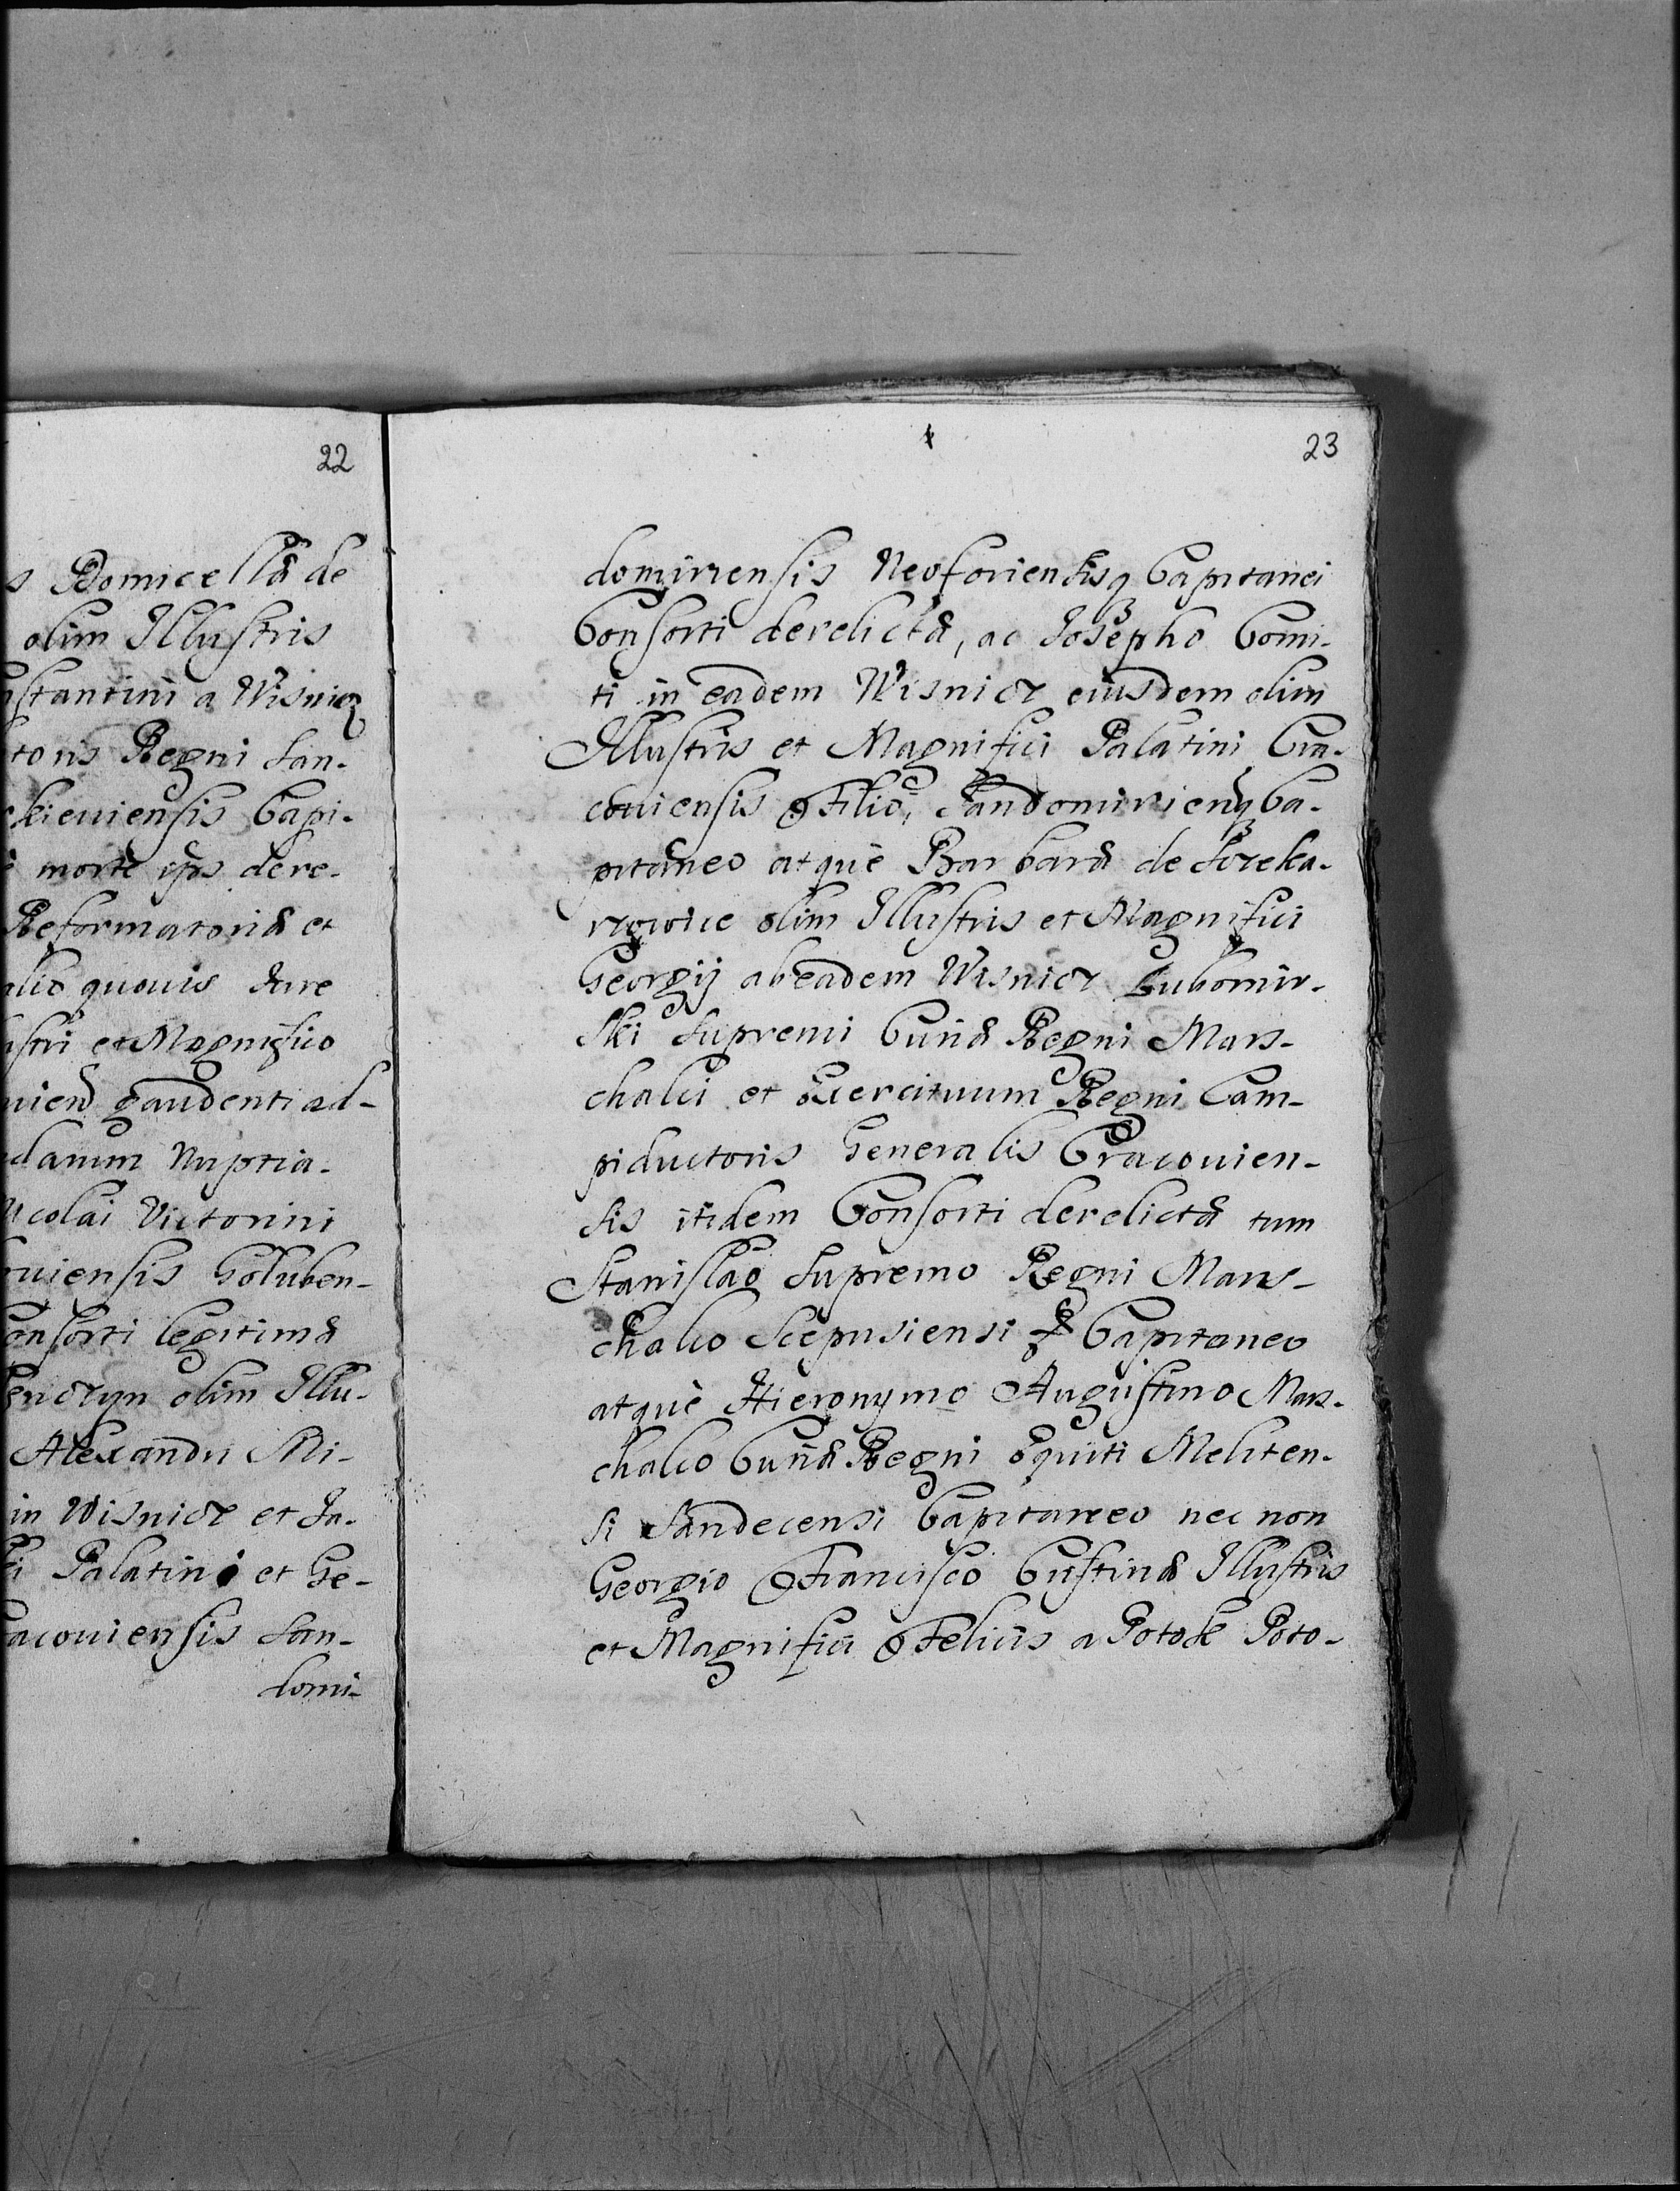 22
s Domicella de
olim Illustris
nstantini a Wisnicz
toris Regni San-
ckieuiensis Capi-
morte ips dere-
Reformatoria et
alio quouis Iure
ustri et Magnifico
uien gaudenti ad-
danum Nuptia-
icolai Victorini
ouiensis Goluben-
onsorti legitima
olim Illu-
Alexandri Mi-
in Wisnicz et Ia-
ki Palatini et Ge-
racouiensis San-
domi-
23
domiriensis Neoforiensisq Capitanei
Consorti derelicta, ac Iosepho Comi-
ti in eadem Wisnicz eiusdem olim
Illustris et Magnifici Palatini Cra-
couiensis Filio, Sandomirienq Ca-
pitaneo atque Barbara de Szreka-
rzowice olim Illustris et Magnifici
Georgij ab eadem Wisnicz Lubomir-
ski Supremi Curia Regni Mars-
chalci et Exercituum Regni Cam-
piductoris Generalis Cracouien-
sis itidem Consorti derelicta tum
Stanislao Supremo Regni Mars-
chalco Scepusiensi & Capitaneo
atque Hieronymo Augustino Mars-
chalco Curia Regni Equiti Meliten-
si Sandecensi Capitaneo nec non
Georgio Francisco Custina Illustris
et Magnifici Felicis a Potok Poto-